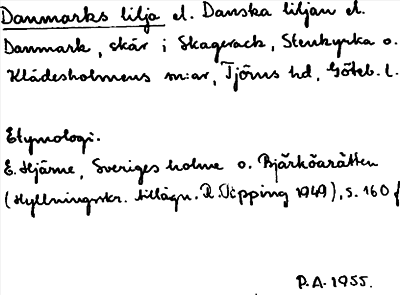 Danmarks lilja el. Danska liljan el.
Danmark, skär i Skagerack, Stenkyrka o.
Klädesholmens m:ar, Tjörns hd, Göteb. l.
Etymologi.
E. Hjärne, Sveriges holme o. Bjärköarätten
(Hyllningsskr. tillägn. R. Pipping 1949), s. 160 f
P.A. 1955.